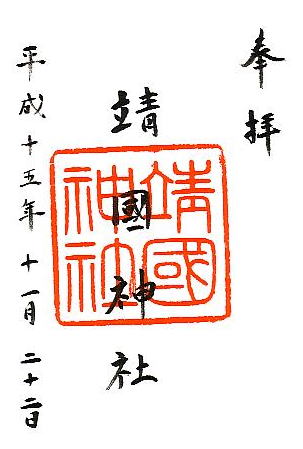 奉拝
靖國神社
靖國神社
平成十五年十一月二十二日